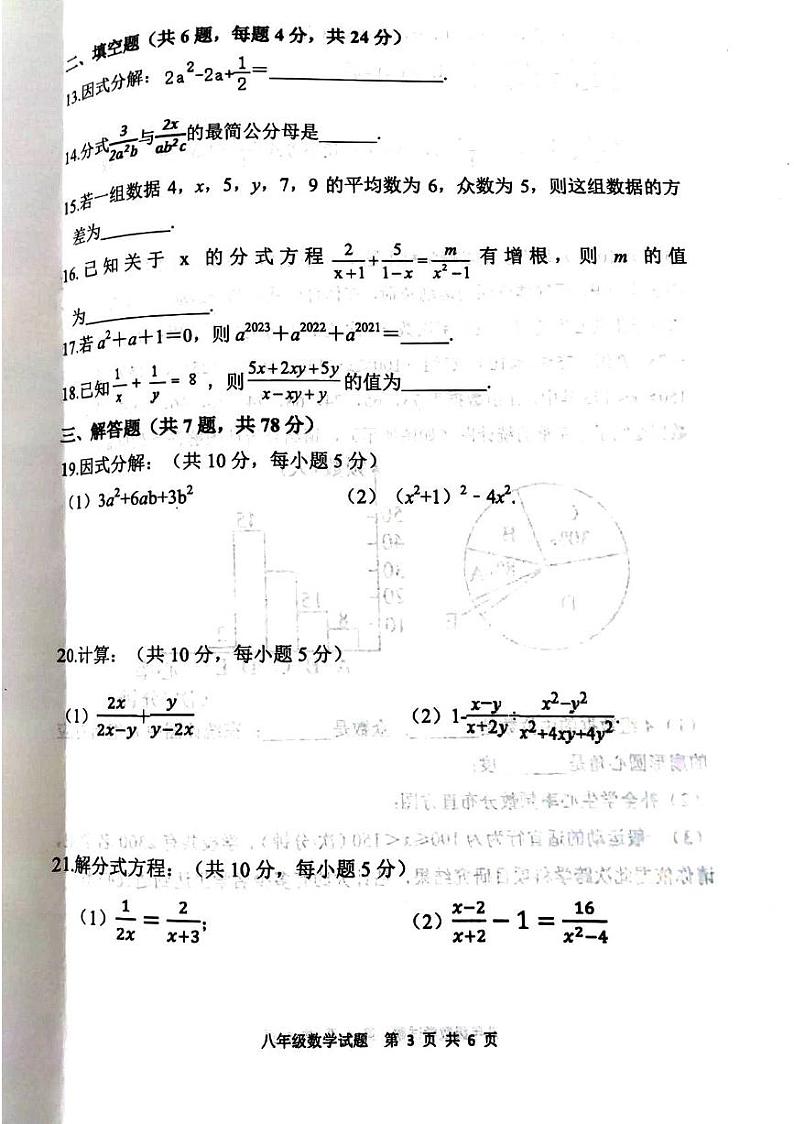 二、填空题（共 6 题，每题 4 分，共 24 分）
13.因式分解：2a²-2a+1/2=________.
14.分式 3/(2a²b) 与 2x/(ab²c) 的最简公分母是______.
15.若一组数据 4，x，5，y，7，9 的平均数为 6，众数为 5，则这组数据的方
差为________.
16.已知关于 x 的分式方程 2/(x+1)+5/(1−x)=m/(x²−1) 有增根，则 m 的值
为____________.
17.若 a²+a+1=0，则 a²⁰²³+a²⁰²²+a²⁰²¹=_____.
18.已知 1/x + 1/y = 8，则 (5x+2xy+5y)/(x−xy+y) 的值为________.
三、解答题（共 7 题，共 78 分）
19.因式分解：（共 10 分，每小题 5 分）
（1）3a²+6ab+3b² （2）（x²+1）²﹣4x².
20.计算：（共 10 分，每小题 5 分）
（1）2x/(2x−y)+y/(y−2x) （2）1-(x−y)/(x+2y)÷(x²−y²)/(x²+4xy+4y²).
21.解分式方程：（共 10 分，每小题 5 分）
（1）1/(2x) = 2/(x+3)； （2）(x−2)/(x+2) − 1 = 16/(x²−4)
八年级数学试题 第 3 页 共 6 页